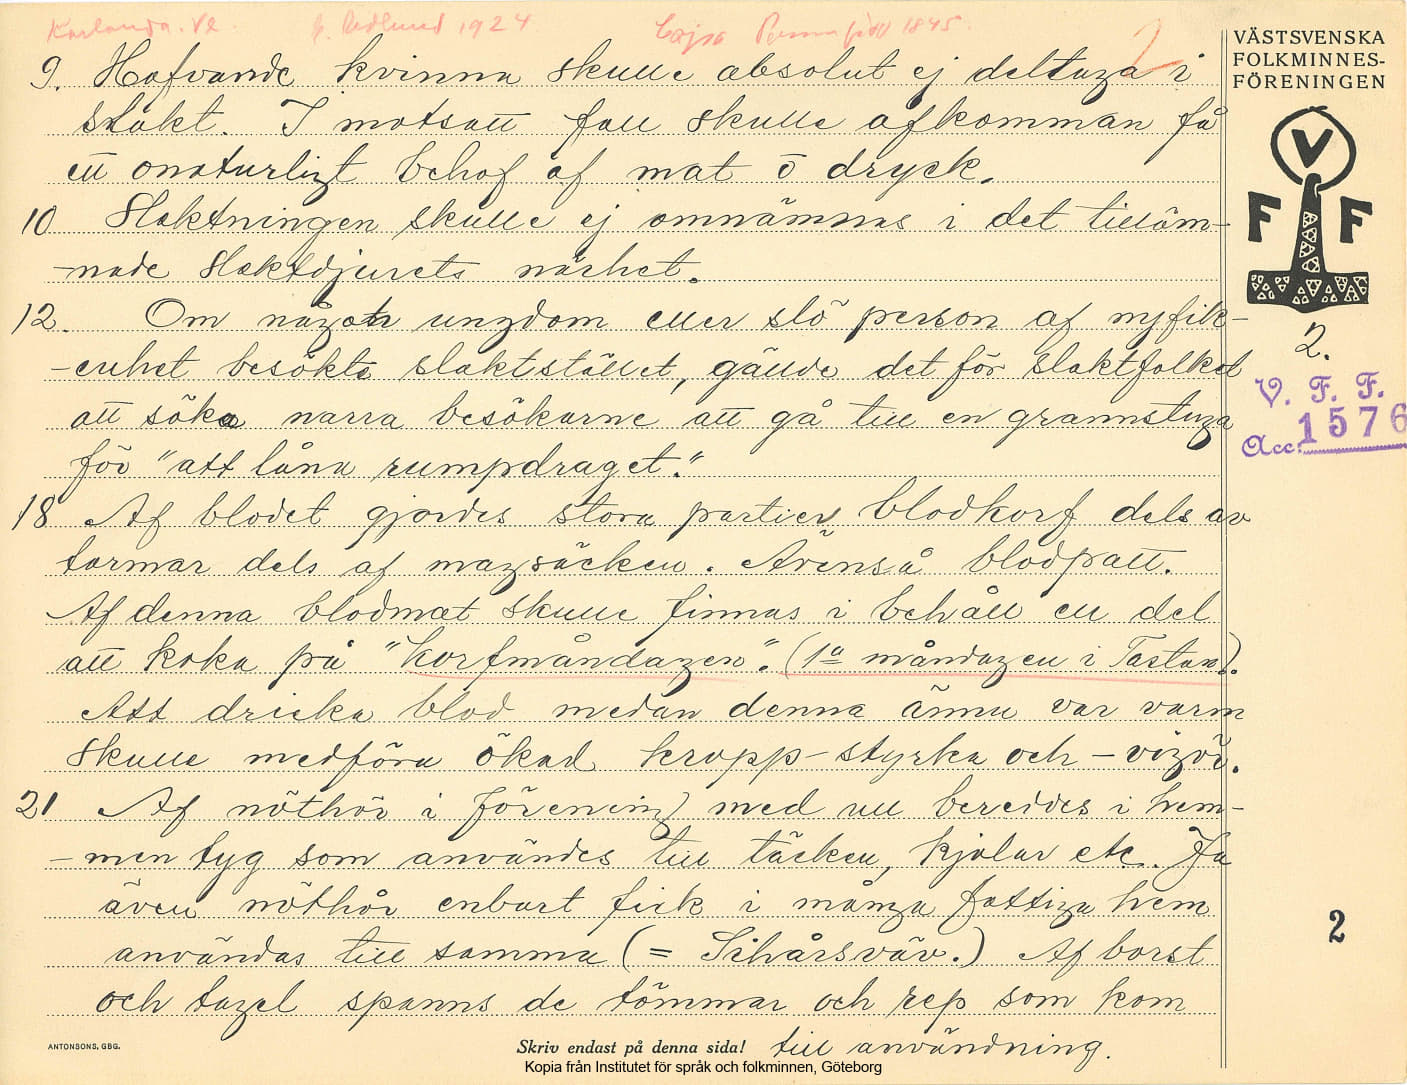 Karlanda. Vl G. Hedlund 1924 Cajsa Persson född 1845. 2
9. Hafvande kvinna skulle absolut ej deltaga i
slakt. I motsatt fall skulle afkomman få
ett onaturligt behof af mat o dryck.
10 Slaktningen skulle ej omnämnas i det tilläm-
-nade slaktdjurets närhet.
12. Om någon ungdom eller slö person af nyfik-
-enhet besökte slaktstället, gällde det för slaktfolket
att söka narra besökarne att gå till en grannstuga
för "att låna rumpdraget."
18 Af blodet gjordes stora partier blodkorf dels av
tarmar dels af magsäcken. Ävenså blodpalt.
Af denna blodmat skulle finnas i behåll en del
att koka på "korfmåndagen". (1a måndagen i Fastan).
Att dricka blod medan denna ännu var varm
skulle medföra ökad kropp-styrka och -vigör.
21 Af nöthår i förening med ull bereddes i hem-
-men tyg som användes till täcken, kjolar etc. Ja
även nöthår enbart fick i många fattiga hem
användas till samma (= Sihårsväv.) Af borst
och tagel spanns de tömmar och rep som kom
till användning.
VÄSTSVENSKA
FOLKMINNES-
FÖRENINGEN
V
F F
2.
V. F. F.
Acc. 1576
2
ANTONSONS, GBG.
Skriv endast på denna sida!
Kopia från Institutet för språk och folkminnen, Göteborg